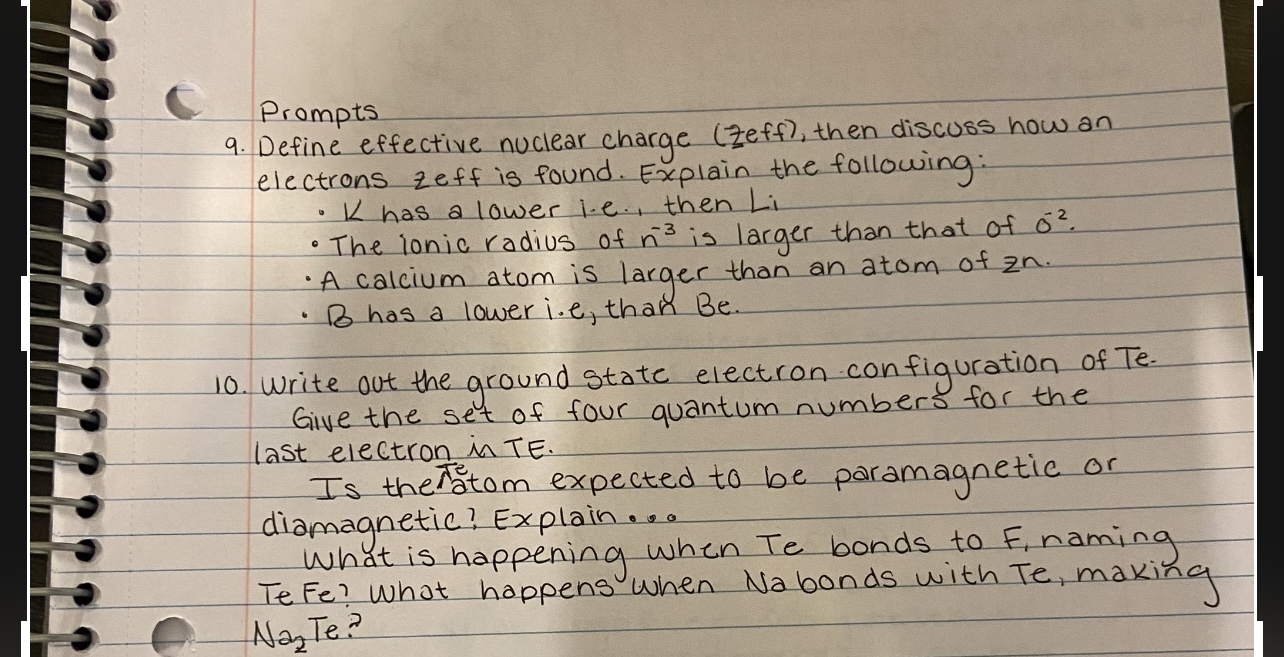 Prompts
9. Define effective nuclear charge (Zeff), then discuss how an
electrons zeff is found. Explain the following:
• K has a lower i.e., then Li
• The ionic radius of n⁻³ is larger than that of o⁻².
• A calcium atom is larger than an atom of zn.
• B has a lower i.e, than Be.
10. Write out the ground state electron configuration of Te.
Give the set of four quantum numbers for the
last electron in TE.
Is the Te atom expected to be paramagnetic or
diamagnetic? Explain...
What is happening when Te bonds to F, naming
TeFe? What happens when Na bonds with Te, making
Na₂Te?